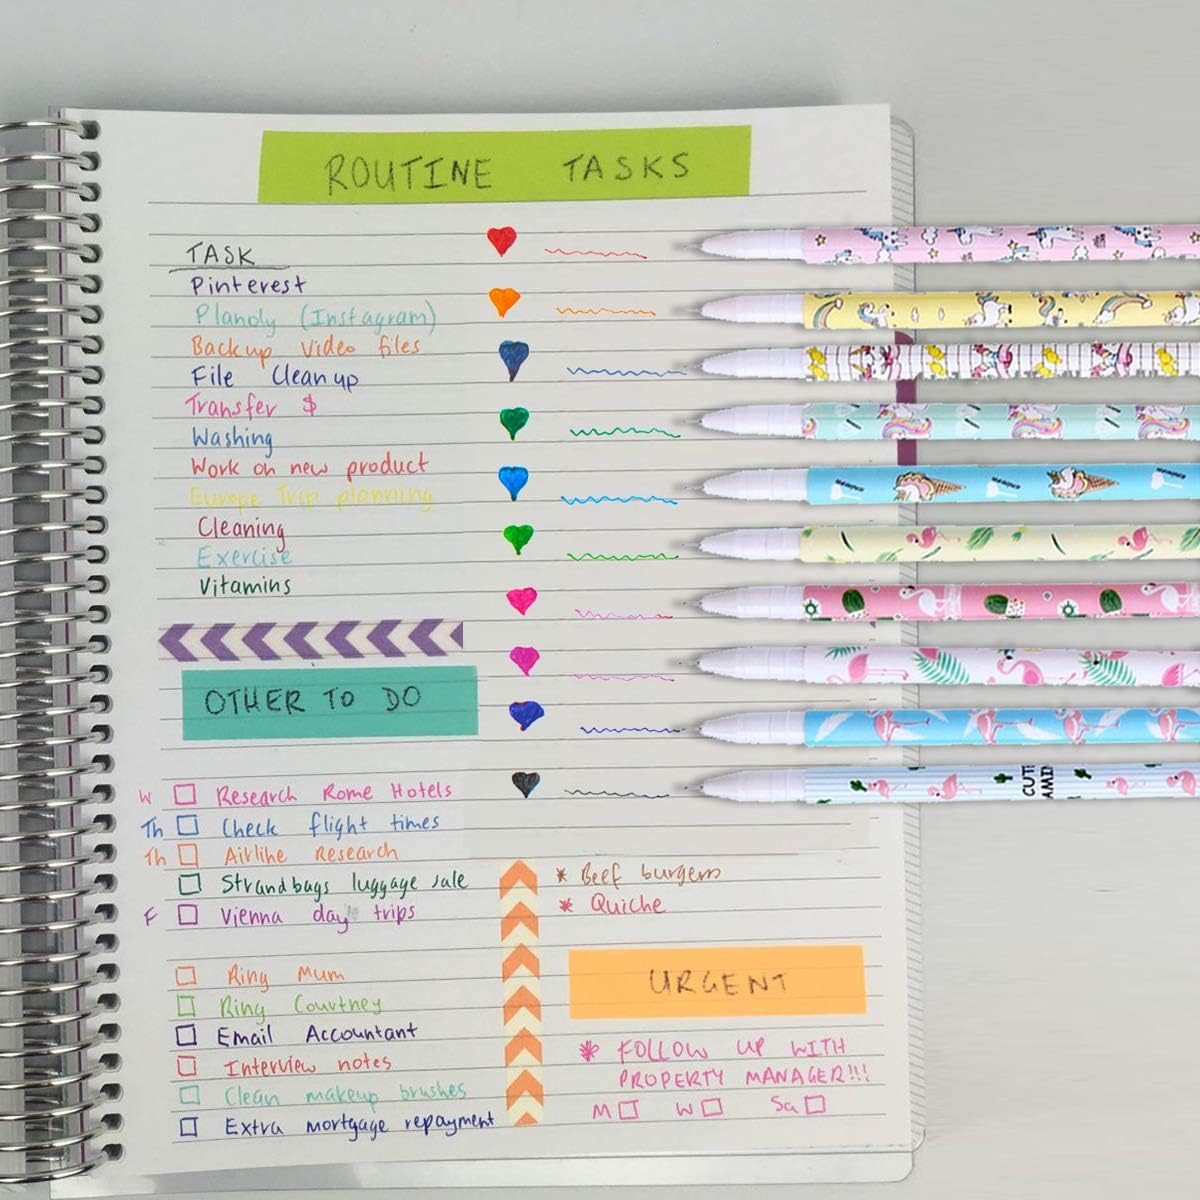 ROUTINE TASKS
TASK
Pinterest
Planoly (Instagram)
Backup Video files
File Clean up
Transfer $
Washing
Work on new product
Europe Trip planning
Cleaning
Exercise
Vitamins
OTHER TO DO
W Research Rome Hotels
Th Check flight times
Th Airline Research
Strandbags luggage sale
F Vienna day trips
Ring Mum
Ring Courtney
Email Accountant
Interview notes
Clean makeup brushes
Extra mortgage repayment
* Beef burgers
* Quiche
URGENT
* FOLLOW UP WITH
PROPERTY MANAGER!!!
M T W Sa
CUTE